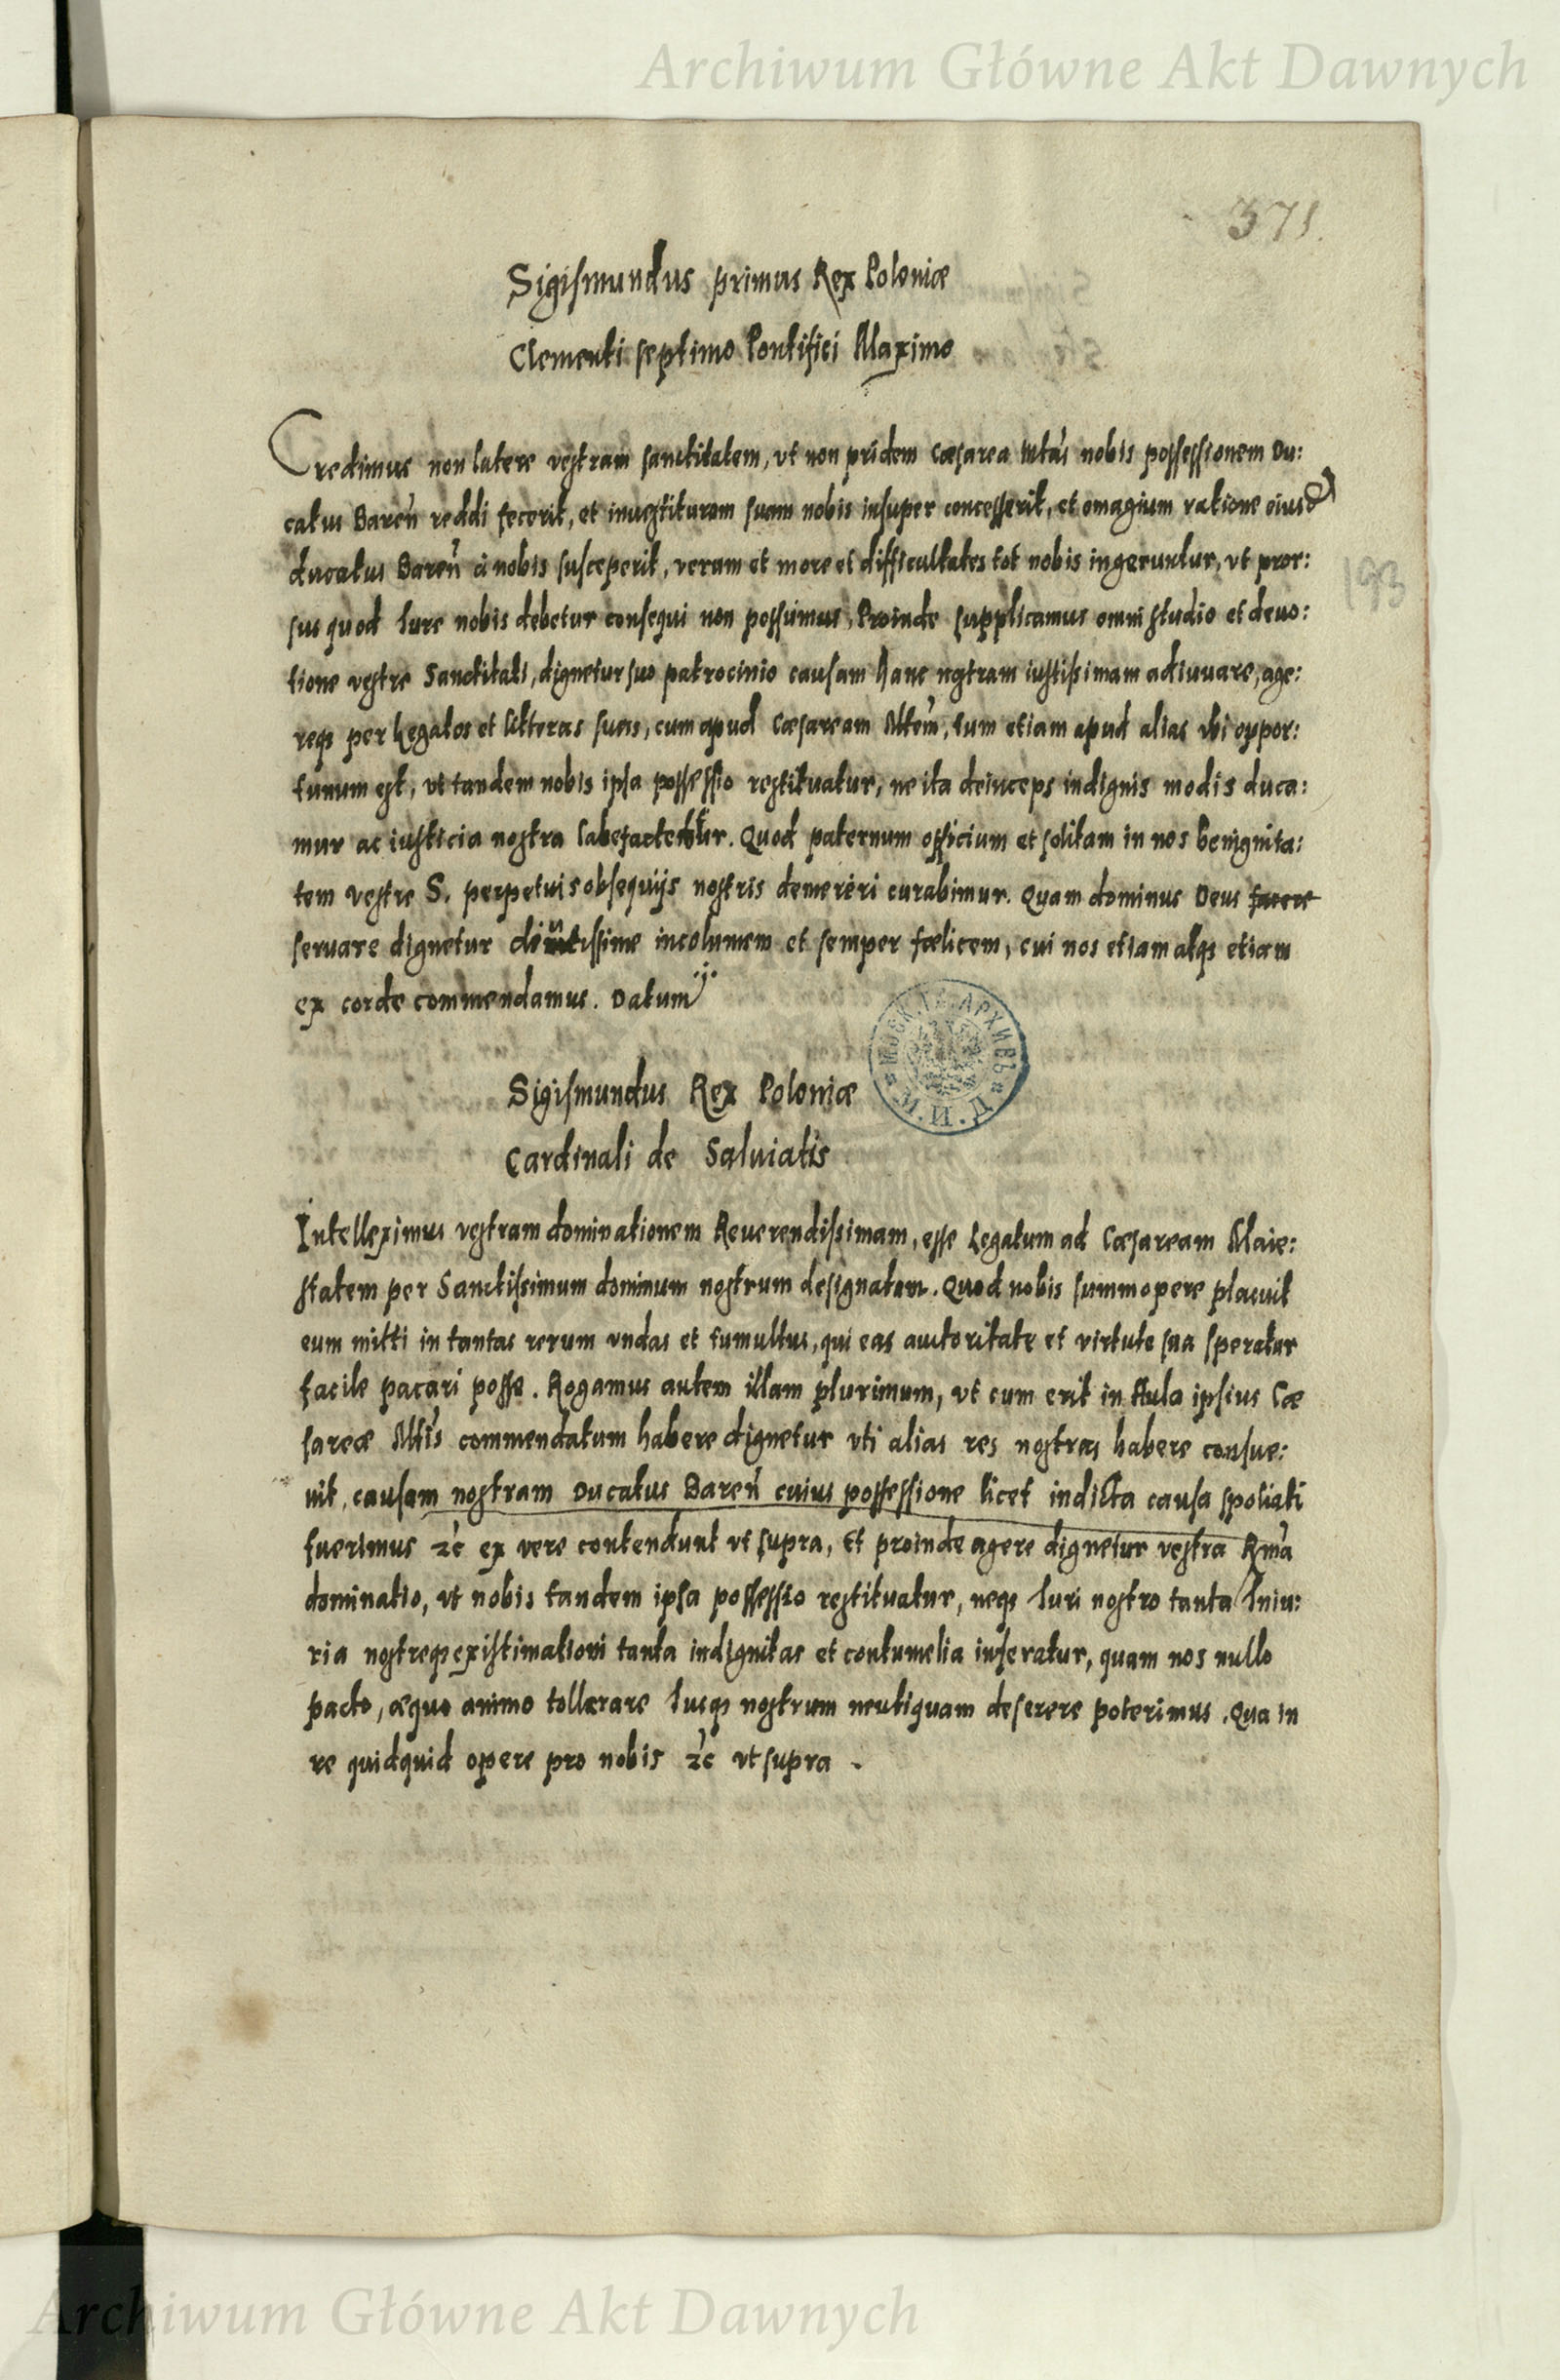 Archiwum Główne Akt Dawnych
371.
Sigismundus primus Rex Poloniæ
Clementi septimo Pontifici Maximo
Credimus non latere vestram sanctitatem, vt non pridem Cæsarea Mtas nobis possessionem Du:
catus Baren reddi fecerit, et inuestituram suam nobis insuper concesserit, et omagium ratione eiusd
ducatus Baren a nobis susceperit, verum et more et difficultates tot nobis ingeruntur, vt pror:
sus quod Iure nobis debetur consequi non possumus, Proinde supplicamus omni studio et deuo:
tione vestre Sanctitati, dignetur suo patrocinio causam hanc nostram iustissimam adiuuare, age:
reqs per Legatos et litteras suas, cum apud Cæsaream Mtem, tum etiam apud alias vbi oppor:
tunum est, vt tandem nobis ipsa possessio restituatur, ne ita deinceps indignis modis duca:
mur ac iusticia nostra labefactetur. Quod paternum officium et solitam in nos benignita:
tem vestre S. perpetuis obsequijs nostris demereri curabimur. Quam dominus Deus facere
seruare dignetur diutissime incolumem et semper fœlicem, cui nos etiam atqs etiam
ex corde commendamus. Datum
193
МОСК. ГЛ. АРХИВЪ М. И. Д.
Sigismundus Rex Poloniæ
Cardinali de Saluiatis
Intelleximus vestram dominationem Reuerendissimam, esse Legatum ad Cæsaream Maie:
statem per Sanctissimum dominum nostrum designatam. Quod nobis summopere placuit
eum mitti in tantas rerum vndas et tumultus, qui eas auctoritate et virtute sua speratur
facile pacari posse. Rogamus autem illam plurimum, vt cum erit in Aula ipsius Cæ
sareæ Mtis commendatum habere dignetur vti alias res nostras habere consue:
uit, causam nostram Ducatus Baren cuius possessione licet indicta causa spoliati
fuerimus zc ex vere contendunt vt supra, Et proinde agere dignetur vestra Rma
dominatio, vt nobis tandem ipsa possessio restituatur, neqs Iuri nostro tanta Iniu:
ria nostreqs existimationi tanta indignitas et contumelia inferatur, quam nos nullo
pacto, æquo animo tollerare Iusqs nostrum neutiquam deserere poterimus. Qua in
re quidquid opere pro nobis zc vt supra
Archiwum Główne Akt Dawnych